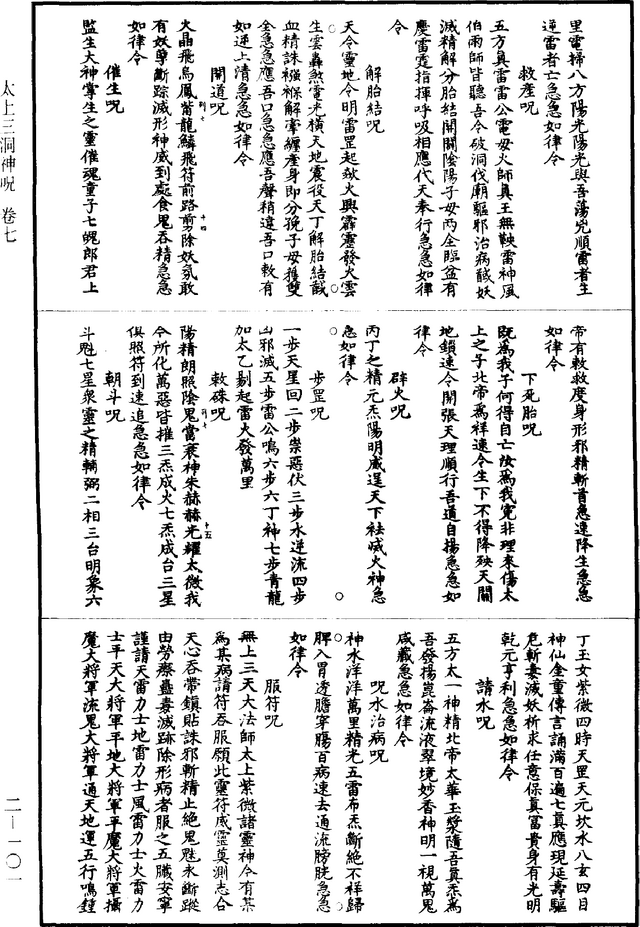 太上三洞神呪 卷七
二—一〇一
里電掃八方陽光陽光與吾蕩兇順雷者生
逆雷者亡急急如律令
救產呪
五方真雷雷公電母火師真王無鞅雷神風
伯雨師皆聽吾令破洞伐廟驅邪治病馘妖
滅精解分胎結開闢陰陽子母两全臨盆有
慶雷霆指揮呼吸相應代天奉行急急如律
令
解胎結呪
天令靈地令明雷罡起欻火興霹靂發火雲
生雲轟煞電光橫天地震役天丁解胎結馘
血精誅襁褓解牽纏產身即分挽子母獲雙
全急急應吾口急急應吾聲稍違吾口敕有
如逆上清急急如律令
開道呪
火晶飛烏鳳觜龍鱗飛符前路剪除妖氛敢
有妖孽斷踪滅形神威到處食鬼吞精急急
如律令
催生呪
監生大神掌生之靈催魂童子七魄郎君上
帝有敕救度身形邪精斬首急速降生急急
如律令
下死胎呪
既為我子何得自亡汝為我寃非理來傷太
上之子北帝爲祥速令生下不得降殃天關
地鎖速令開張天理順行吾道自揚急急如
律令
辟火呪
丙丁之精元炁陽明威逞天下祛烕火神急
急如律令
步罡呪
一步天星回二步祟惡伏三步水逆流四步
凶邪滅五步雷公鳴六步六丁神七步青龍
加太乙剔起雷火發萬里
敕硃呪
陽精朗照陰鬼當衰神朱赫赫光耀太微我
今所化萬惡皆摧三炁成火七炁成台三星
俱照符到速追急急如律令
朝斗呪
斗魁七星衆靈之精輔弼二相三台明象六
丁玉女紫微四時天罡天元坎水八玄四目
神仙金童傳言誦滿百遍七真應現延壽驅
危斬妻滅妖祈求任意保真富貴身有光明
乾元亨利急急如律令
請水呪
五方太一神精北帝太華玉漿隨吾真炁為
吾發揚崑崙流液翠境妙香神明一視萬鬼
咸藏急急如律令
呪水治病呪
神水洋洋萬里精光五雷布炁斷絶不祥歸
脾入胃透膽穿腸百病速去通流膀胱急急
如律令
服符呪
無上三天大法師太上紫微諸靈神今有某
為某病請符吞服願此靈符威靈莫測志合
天心吞帶鎮貼誅邪斬精止絶鬼魅永斷蹤
由勞瘵蠱毒滅跡除形病者服之五臟安寧
謹請天雷力士地雷力士風雷力士火雷力
士平天大將軍平地大將軍平魔大將軍攝
魔大將軍流鬼大將軍通天地運五行鳴鐘